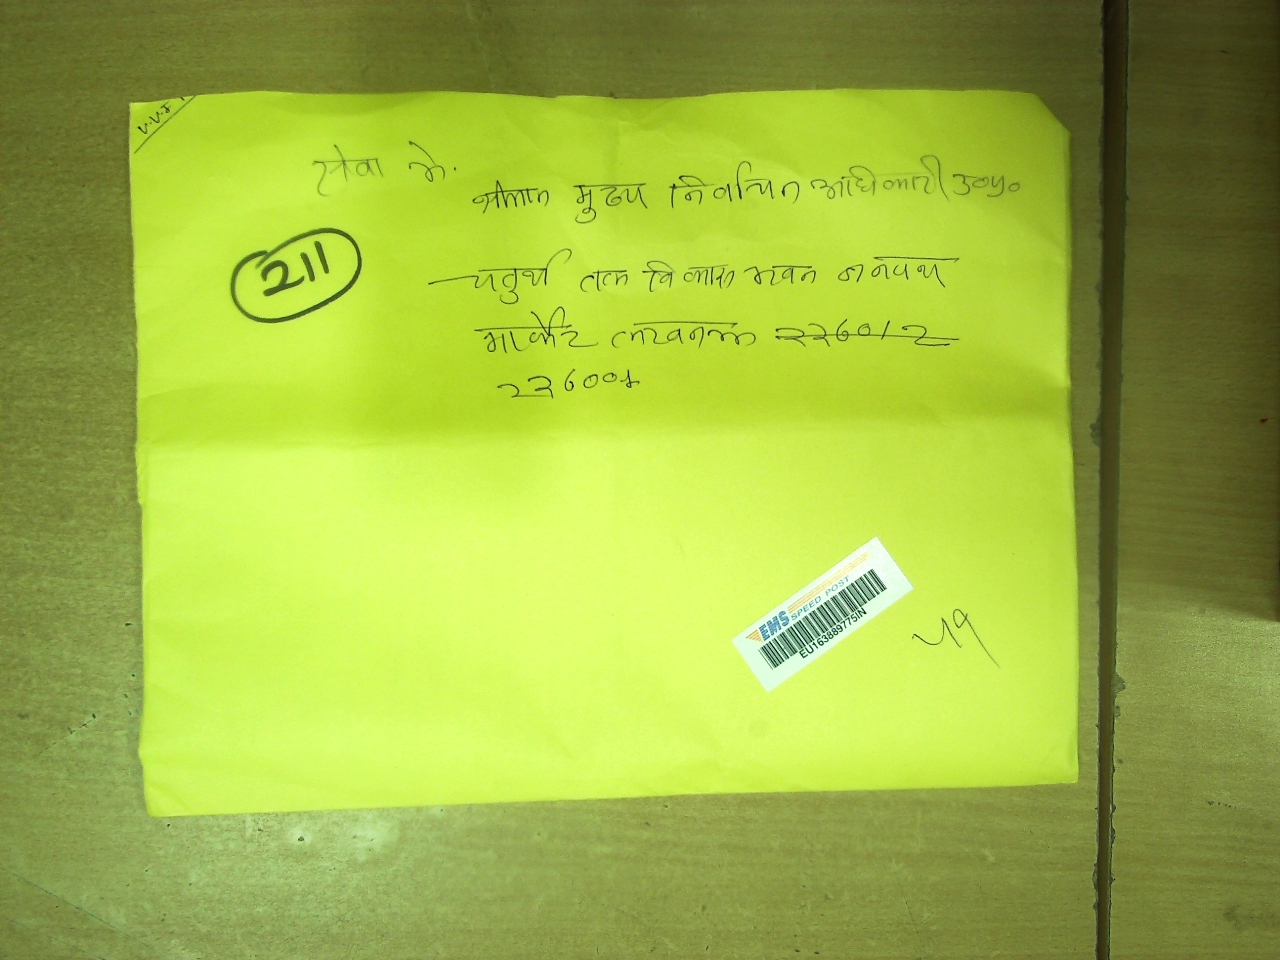 सेवा में.
श्रीमान मुख्य निर्वाचन अधिकारी उ०प्र०
211
चतुर्थ तल विकास भवन जनपथ
मार्केट लखनऊ 226012
226001
EMS SPEED POST
EU163889775IN